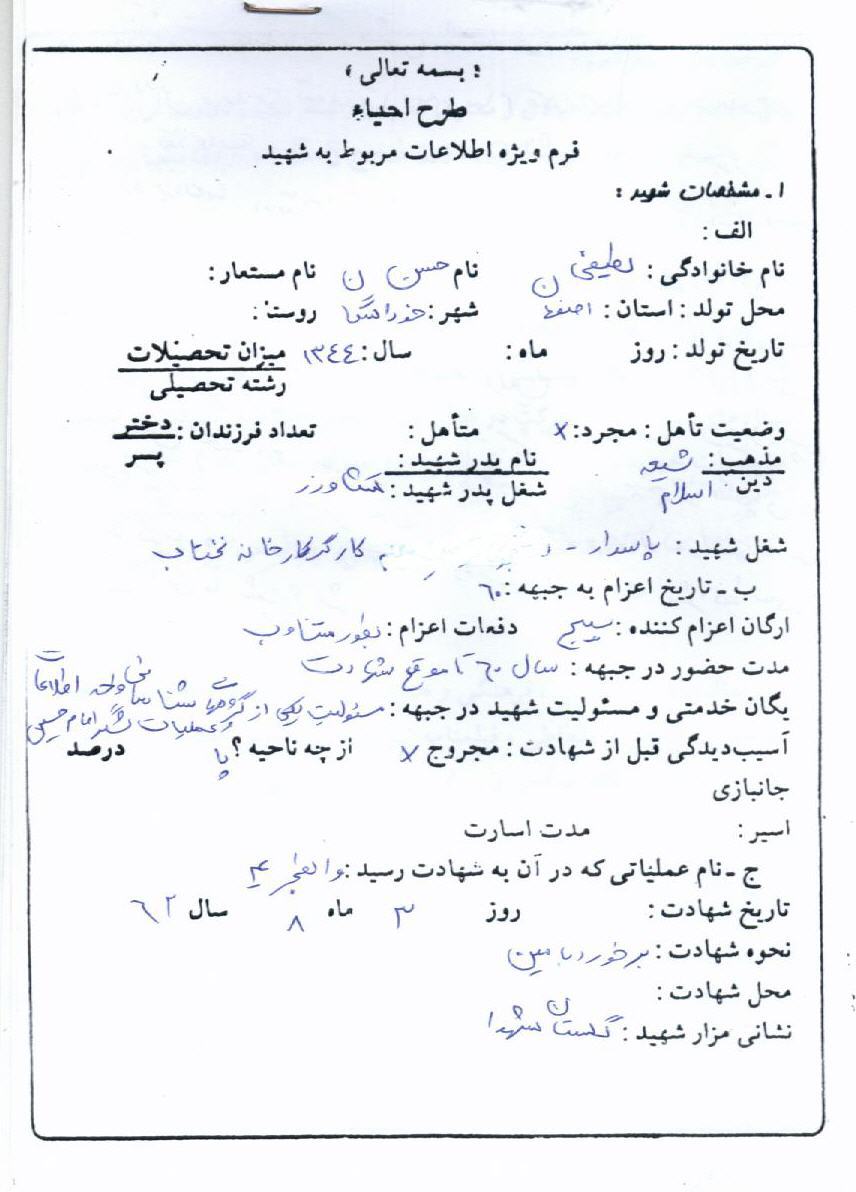 ؛ بسمه تعالی ؛
طرح احیاء
فرم ویژه اطلاعات مربوط به شهید
۱ ـ مشخصات شهید :
الف :
نام خانوادگی : لطیفی نام حسن نام مستعار :
محل تولد : استان : اصفها شهر : خوراسگا روستا :
تاریخ تولد : روز ماه : سال : ۱۳۴۴ میزان تحصیلات
رشته تحصیلی
وضعیت تأهل : مجرد : x متأهل : تعداد فرزندان : دختر
پسر
مذهب : شیعه نام پدر شهید :
دین اسلام شغل پدر شهید : کشاورز
شغل شهید : پاسدار - کارگر کارخانه نختاب
ب ـ تاریخ اعزام به جبهه : ۶۰
ارگان اعزام کننده : بسیج دفعات اعزام : بطور متناوب
مدت حضور در جبهه : سال ۶۰ تا موقع شهادت
یگان خدمتی و مسئولیت شهید در جبهه : مسئولیت یکی از گروههای شناسائی واحد اطلاعات
و عملیات لشگر امام حسین
آسیب‌دیدگی قبل از شهادت : مجروح x از چه ناحیه ؟ پا درصد
جانبازی
اسیر : مدت اسارت
ج ـ نام عملیاتی که در آن به شهادت رسید : والفجر ۴
تاریخ شهادت : روز ۳ ماه ۸ سال ۶۲
نحوه شهادت : برخورد با مین
محل شهادت :
نشانی مزار شهید : گلستان شهدا